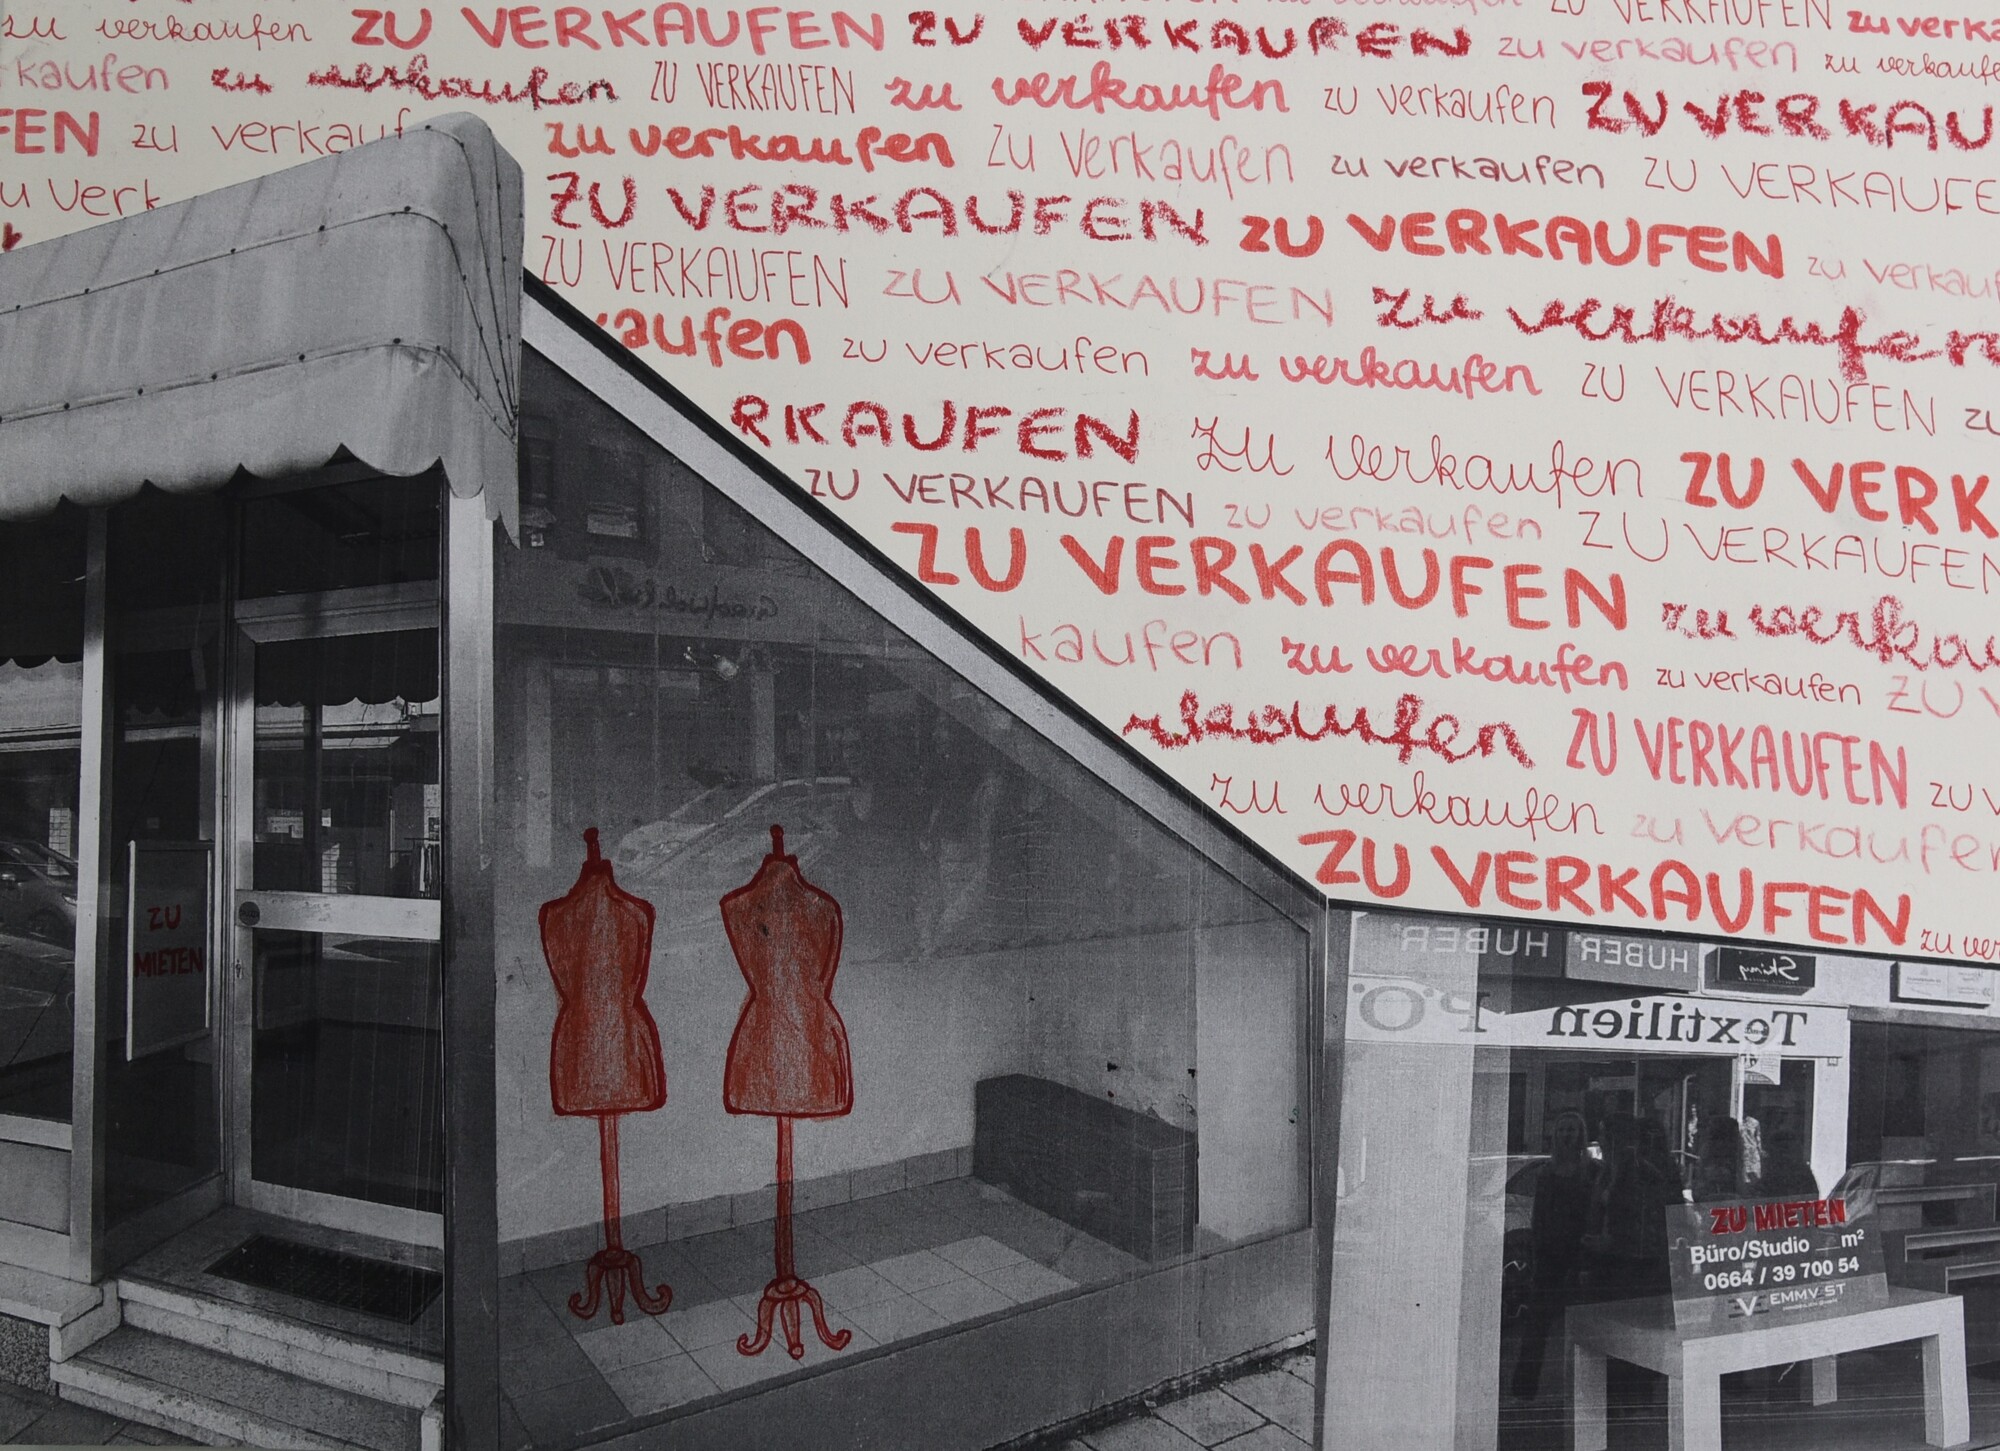 zu verkaufen ZU VERKAUFEN ZU VERKAUFEN zu verkaufen ZU VERKAUFEN zu verka
kaufen zu verkaufen ZU VERKAUFEN zu verkaufen zu verkaufen zu verkaufe
FEN zu verkauf zu verkaufen Zu Verkaufen zu verkaufen ZU VERKAU
u Verk ZU VERKAUFEN ZU VERKAUFEN ZU VERKAUFE
ZU VERKAUFEN ZU VERKAUFEN zu verkaufen zu verkauf
kaufen zu verkaufen zu verkaufen ZU VERKAUFEN zu
RKAUFEN zu verkaufen ZU VERK
ZU VERKAUFEN zu verkaufen ZU VERKAUFEN
ZU VERKAUFEN zu verkau
kaufen zu verkaufen zu verkaufen ZU V
rkaufen ZU VERKAUFEN zu v
zu verkaufen zu verkaufen
ZU VERKAUFEN zu ver
HUBER HUBER Skiny
Textilien P.O.
ZU
MIETEN
ZU MIETEN
Büro/Studio __ m²
0664 / 39 700 54